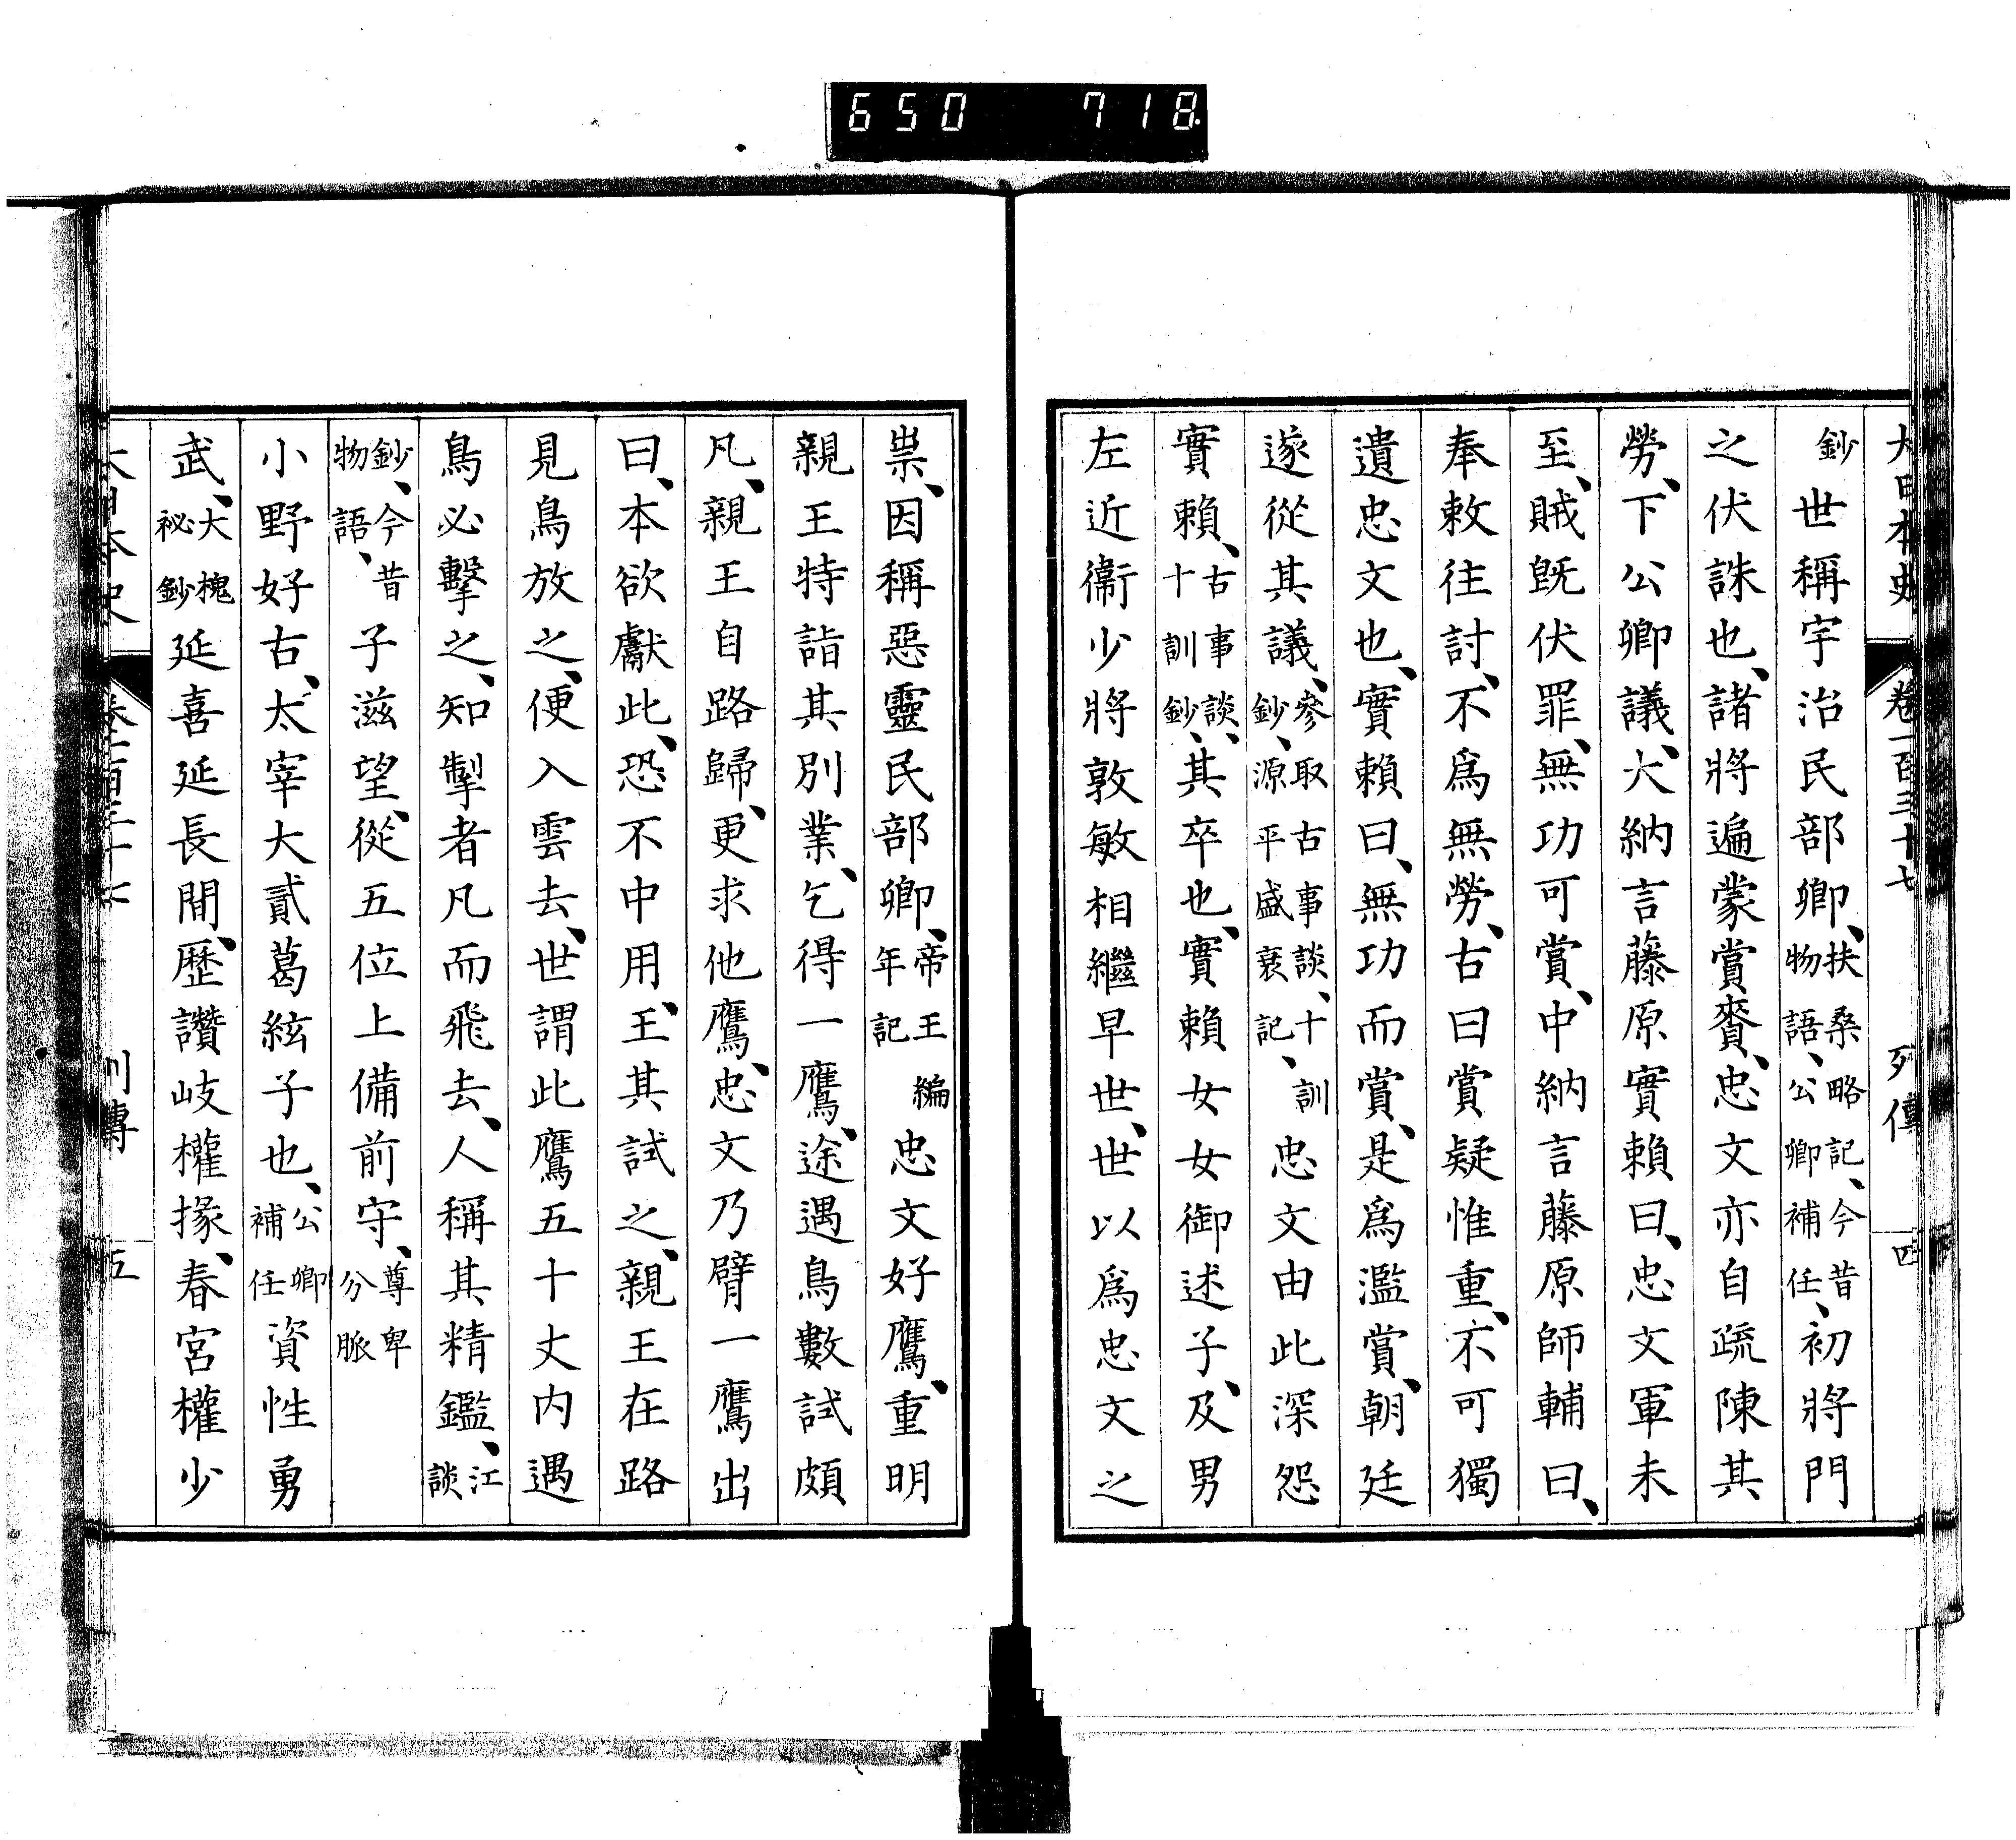 650 718
大日本史 卷一百三十七 列傳 四
鈔世稱宇治民部卿、扶桑略記、今昔物語、公卿補任、初將門
之伏誅也、諸將遍蒙賞賚、忠文亦自疏陳其
勞、下公卿議、大納言藤原實賴曰、忠文軍未
至、賊旣伏罪、無功可賞、中納言藤原師輔曰、
奉敕往討、不爲無勞、古曰賞疑惟重、不可獨
遺忠文也、實賴曰、無功而賞、是爲濫賞、朝廷
遂從其議、參取古事談、十訓鈔、源平盛衰記、忠文由此深怨
實賴、古事談、十訓鈔、其卒也、實賴女女御述子、及男
左近衞少將敦敏相繼早世、世以爲忠文之
祟、因稱惡靈民部卿、帝王編年記忠文好鷹、重明
親王特詣其別業、乞得一鷹、途遇鳥數試頗
凡、親王自路歸、更求他鷹、忠文乃臂一鷹出
曰、本欲獻此、恐不中用、王其試之、親王在路
見鳥放之、便入雲去、世謂此鷹五十丈内遇
鳥必擊之、知掣者凡而飛去、人稱其精鑑、江談
鈔、今昔物語、子滋望、從五位上備前守、尊卑分脈
小野好古、太宰大貳葛絃子也、公卿補任資性勇
武、大槐祕鈔延喜延長間、歷讚岐權掾、春宮權少
大日本史 卷一百三十七 列傳 五